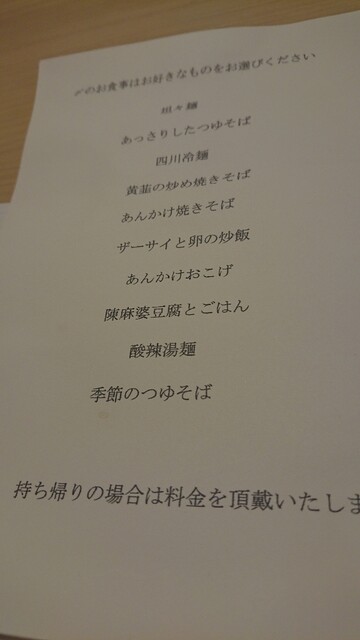 のお食事はお好きなものをお選びください
担々麺
あっさりしたつゆそば
四川冷麺
黄韮の炒め焼きそば
あんかけ焼きそば
ザーサイと卵の炒飯
あんかけおこげ
陳麻婆豆腐とごはん
酸辣湯麺
季節のつゆそば
持ち帰りの場合は料金を頂戴いたしま